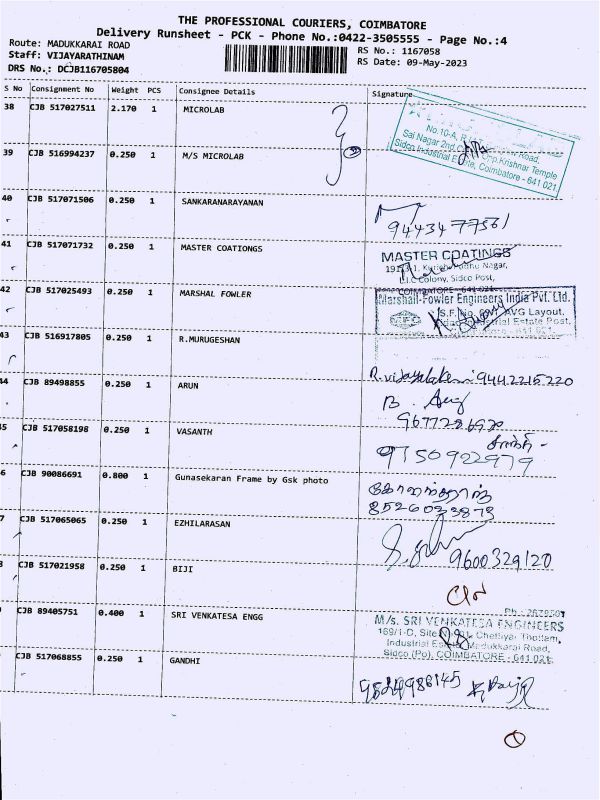 THE PROFESSIONAL COURIERS, COIMBATORE
Delivery Runsheet - PCK - Phone No.:0422-3505555 - Page No.:4
Route: MADUKKARAI ROAD
RS No.: 1167058
Staff: VIJAYARATHINAM
RS Date: 09-May-2023
DRS No.: DCJB116705804
S No Consignment No Weight PCS Consignee Details Signature
38 CJB 517027511 2.170 1 MICROLAB
No.10-A,
Road,
Sai Nagar 2nd Opp.Krishnar Temple
Sidco Industrial Estate, Coimbatore - 641 021
39 CJB 516994237 0.250 1 M/S MICROLAB
39
40 CJB 517071506 0.250 1 SANKARANARAYANAN
9443477561
41 CJB 517071732 0.250 1 MASTER COATIONGS
MASTER COATINGS
Nagar,
Colony, Sidco Post,
COIMBATORE - 641 021
42 CJB 517025493 0.250 1 MARSHAL FOWLER
Marshall-Fowler Engineers India Pvt. Ltd.
S.F.No. AVG Layout,
Industrial Estate Post,
641 021.
43 CJB 516917805 0.250 1 R.MURUGESHAN
R.vijayalakshmi 9442215220
44 CJB 89498855 0.250 1 ARUN
B.
45 CJB 517058198 0.250 1 VASANTH
9750922979
6 CJB 90086691 0.800 1 Gunasekaran Frame by Gsk photo
8526033873
7 CJB 517065065 0.250 1 EZHILARASAN
9600329120
8 CJB 517021958 0.250 1 BIJI
CJB 89405751 0.400 1 SRI VENKATESA ENGG
M/s. SRI VENKATESA ENGINEERS
169/1-D, Site Chettiyar Thottam,
Industrial Estate, Madukkarai Road,
Sidco (Po), COIMBATORE - 641 021.
CJB 517068855 0.250 1 GANDHI